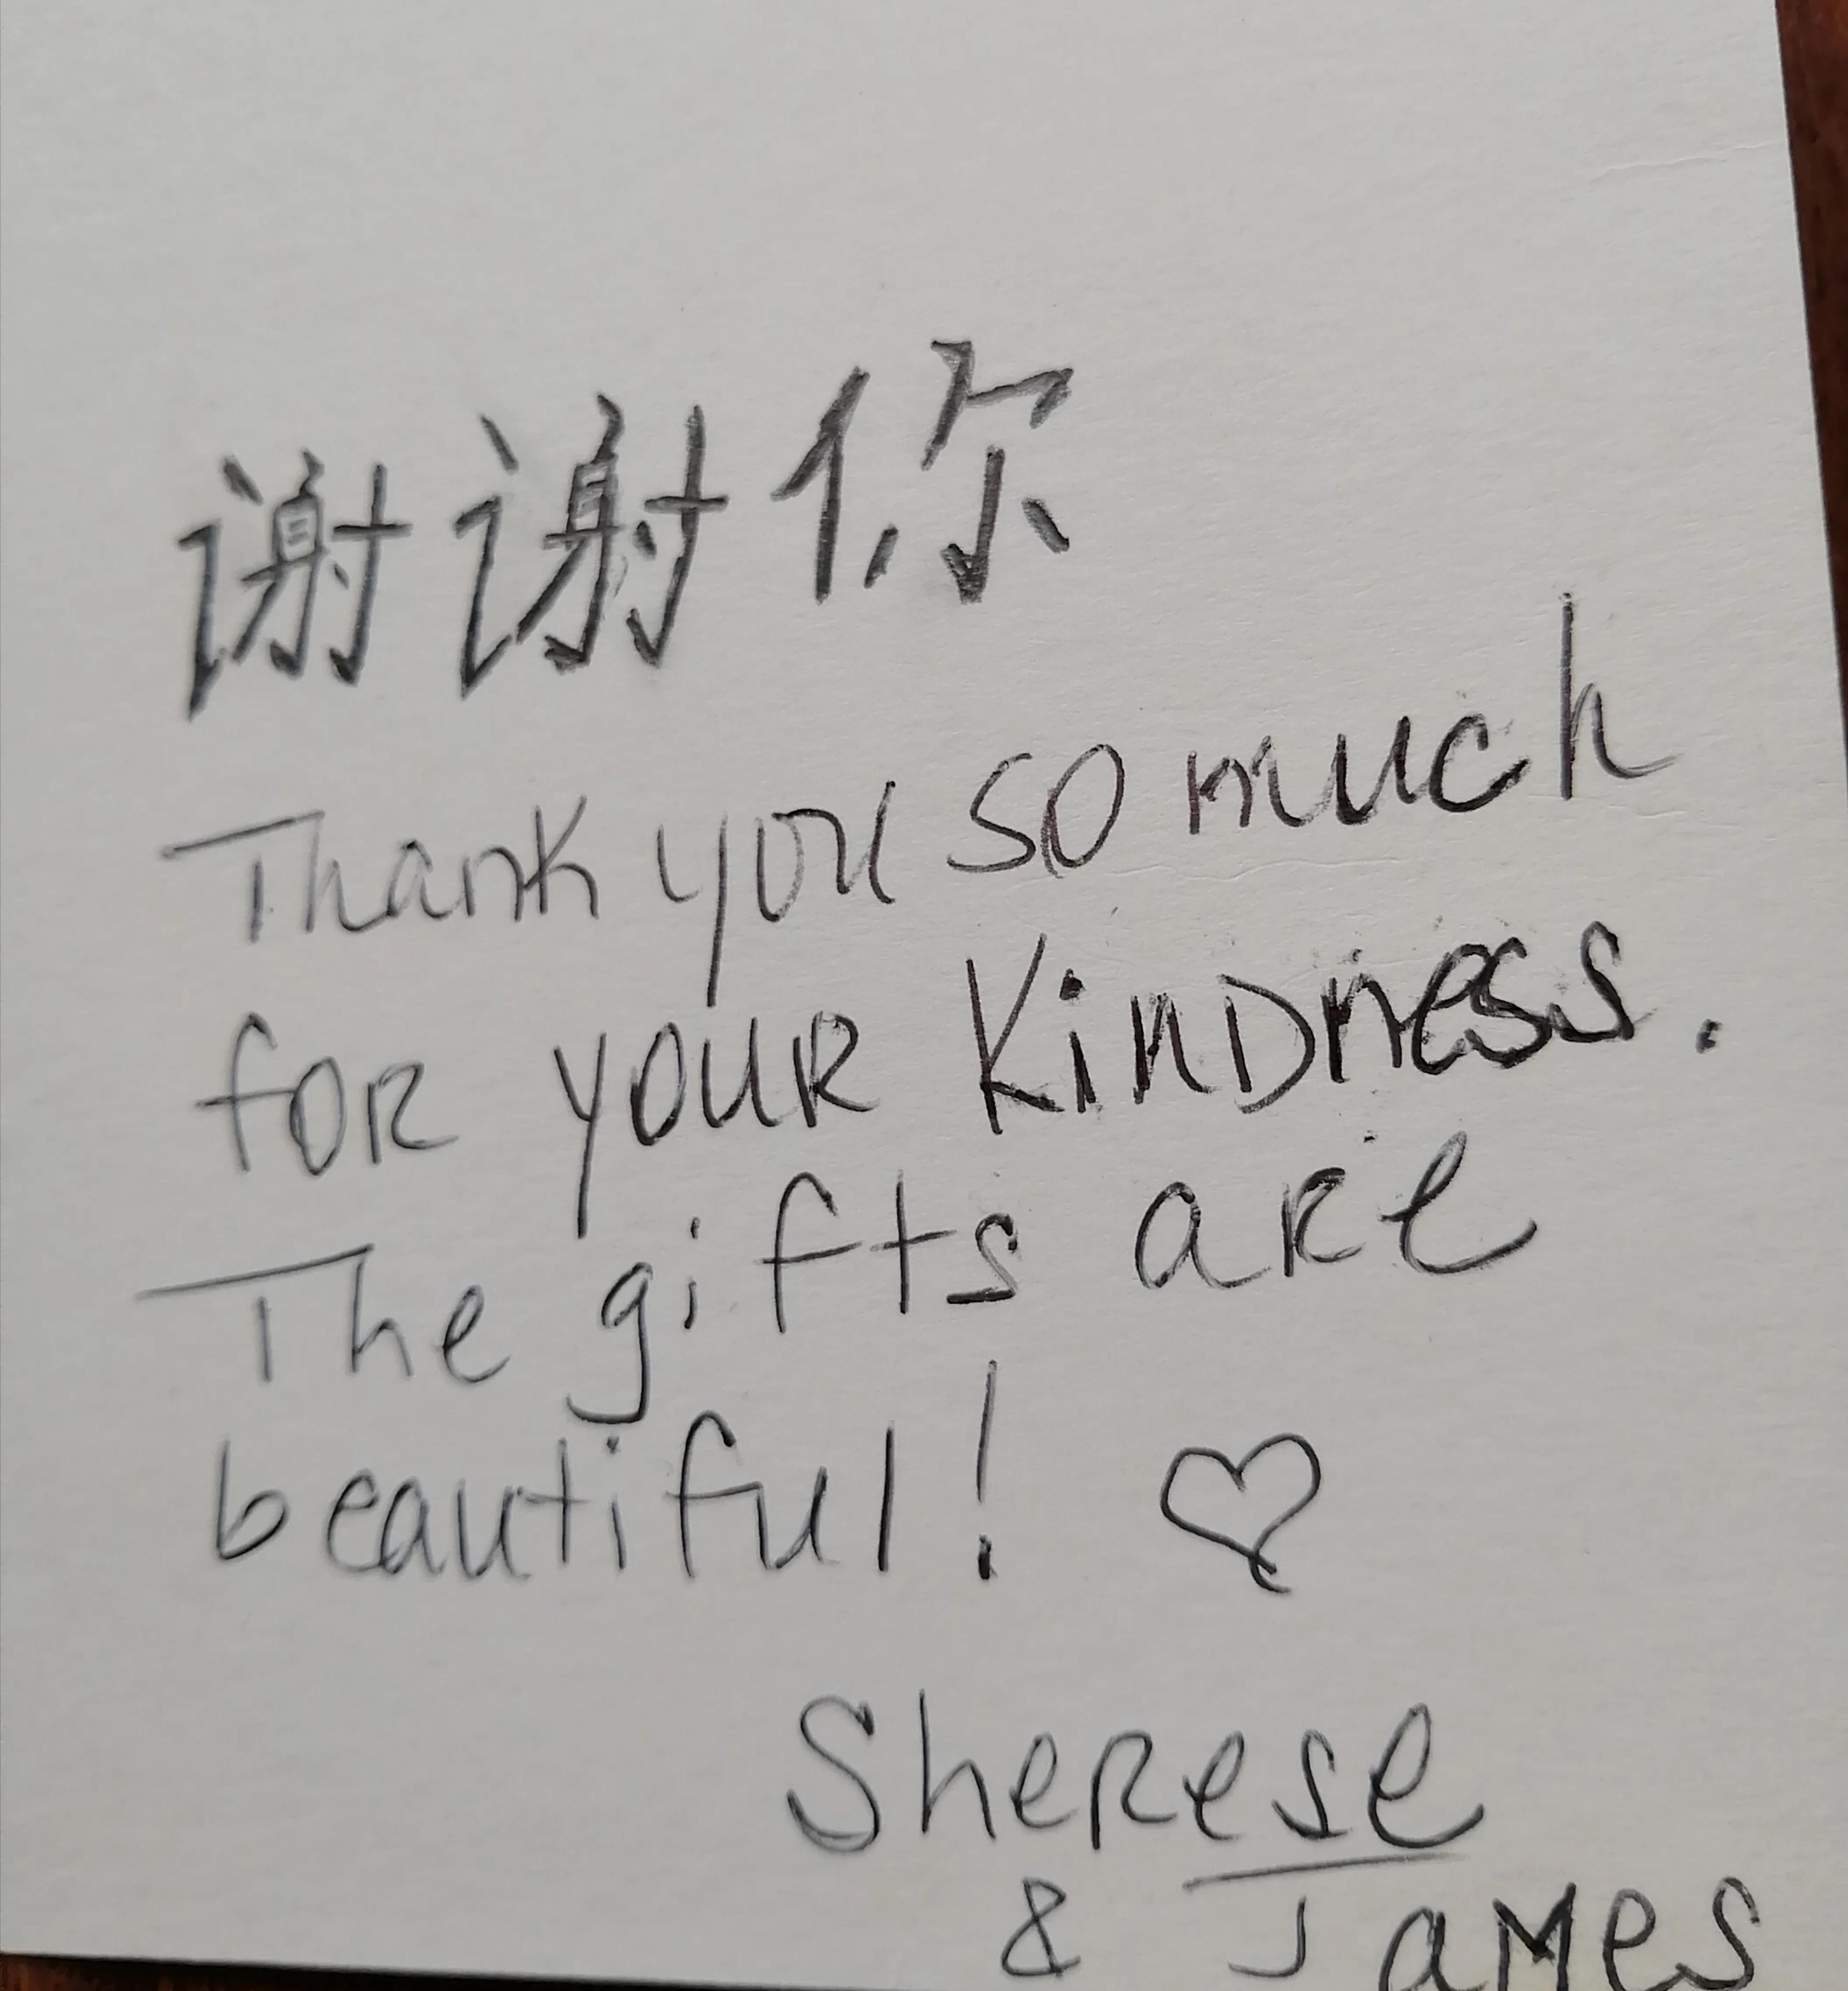 谢谢你
Thank you so much
for your Kindness.
The gifts are
beautiful! ♡
Sherese
& James